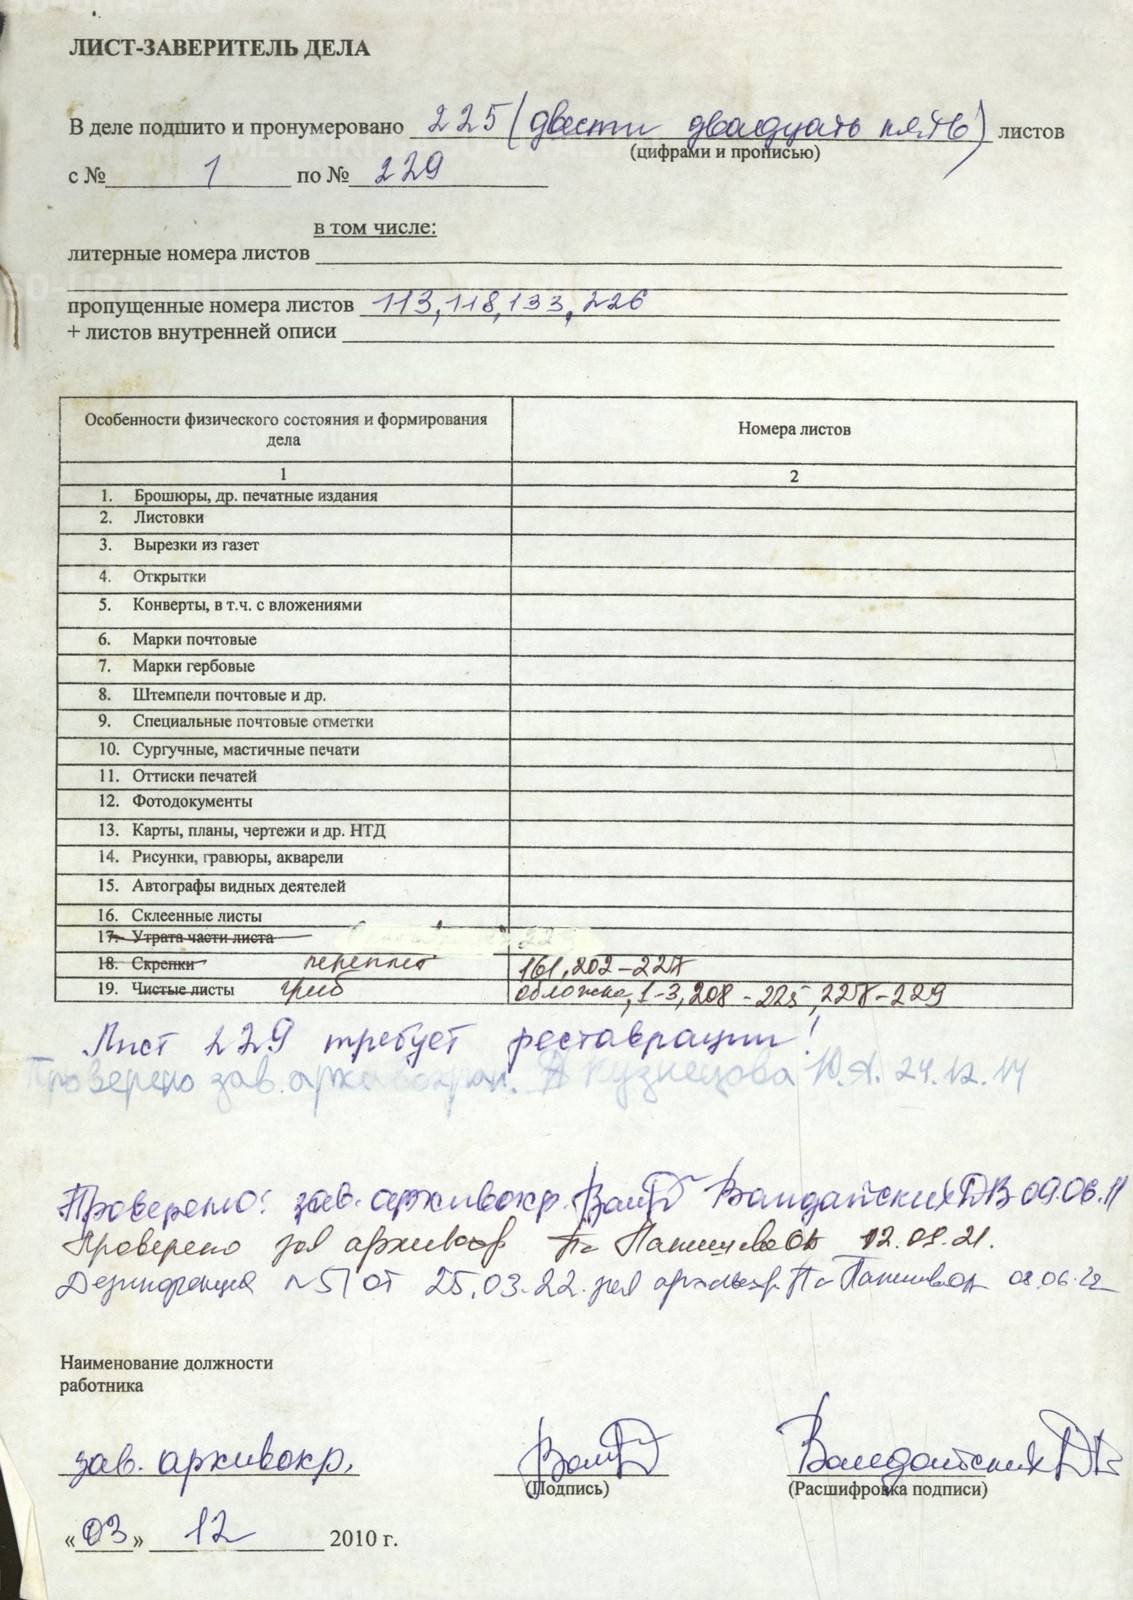 ЛИСТ-ЗАВЕРИТЕЛЬ ДЕЛА
В деле подшито и пронумеровано 225 (двести двадцать пять) листов
(цифрами и прописью)
с № 1 по № 229
в том числе:
литерные номера листов
пропущенные номера листов 113, 118, 133, 226
+ листов внутренней описи
Особенности физического состояния и формирования дела Номера листов
1 2
1. Брошюры, др. печатные издания
2. Листовки
3. Вырезки из газет
4. Открытки
5. Конверты, в т.ч. с вложениями
6. Марки почтовые
7. Марки гербовые
8. Штемпели почтовые и др.
9. Специальные почтовые отметки
10. Сургучные, мастичные печати
11. Оттиски печатей
12. Фотодокументы
13. Карты, планы, чертежи и др. НТД
14. Рисунки, гравюры, акварели
15. Автографы видных деятелей
16. Склеенные листы
17. Утрата части листа
18. Скрепки переплет 161, 202-227
19. Чистые листы гриб обложка, 1-3, 208-225, 228-229
Лист 229 требует реставрации!
Проверено зав. архивохран. Кузнецова Ю.А. 24.12.14
Проверено: зав. архивохр. Валдайских ДВ 09.06.11
Проверено зав архивохр 12.08.21.
Дезинфекция №51 от 25.03.22. зав архивохр. 08.06.22
Наименование должности
работника
зав. архивохр. Валдайских ДВ
(Подпись) (Расшифровка подписи)
«03» 12 2010 г.